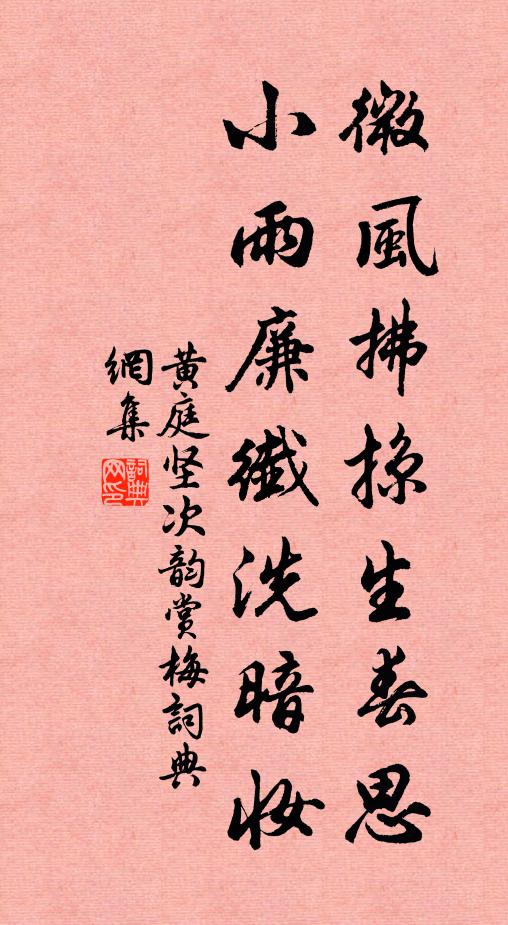 微風拂掠生春思
小雨廉纖洗暗妆
黄庭坚次韵賞梅詞典
網集
詞典网印